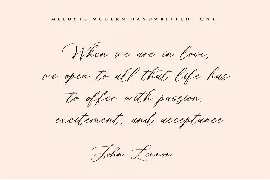 MODERN HANDWRITTEN FONT
When we are in love,
we open to all that life has
to offer with passion,
excitement, and acceptance
John Lennon